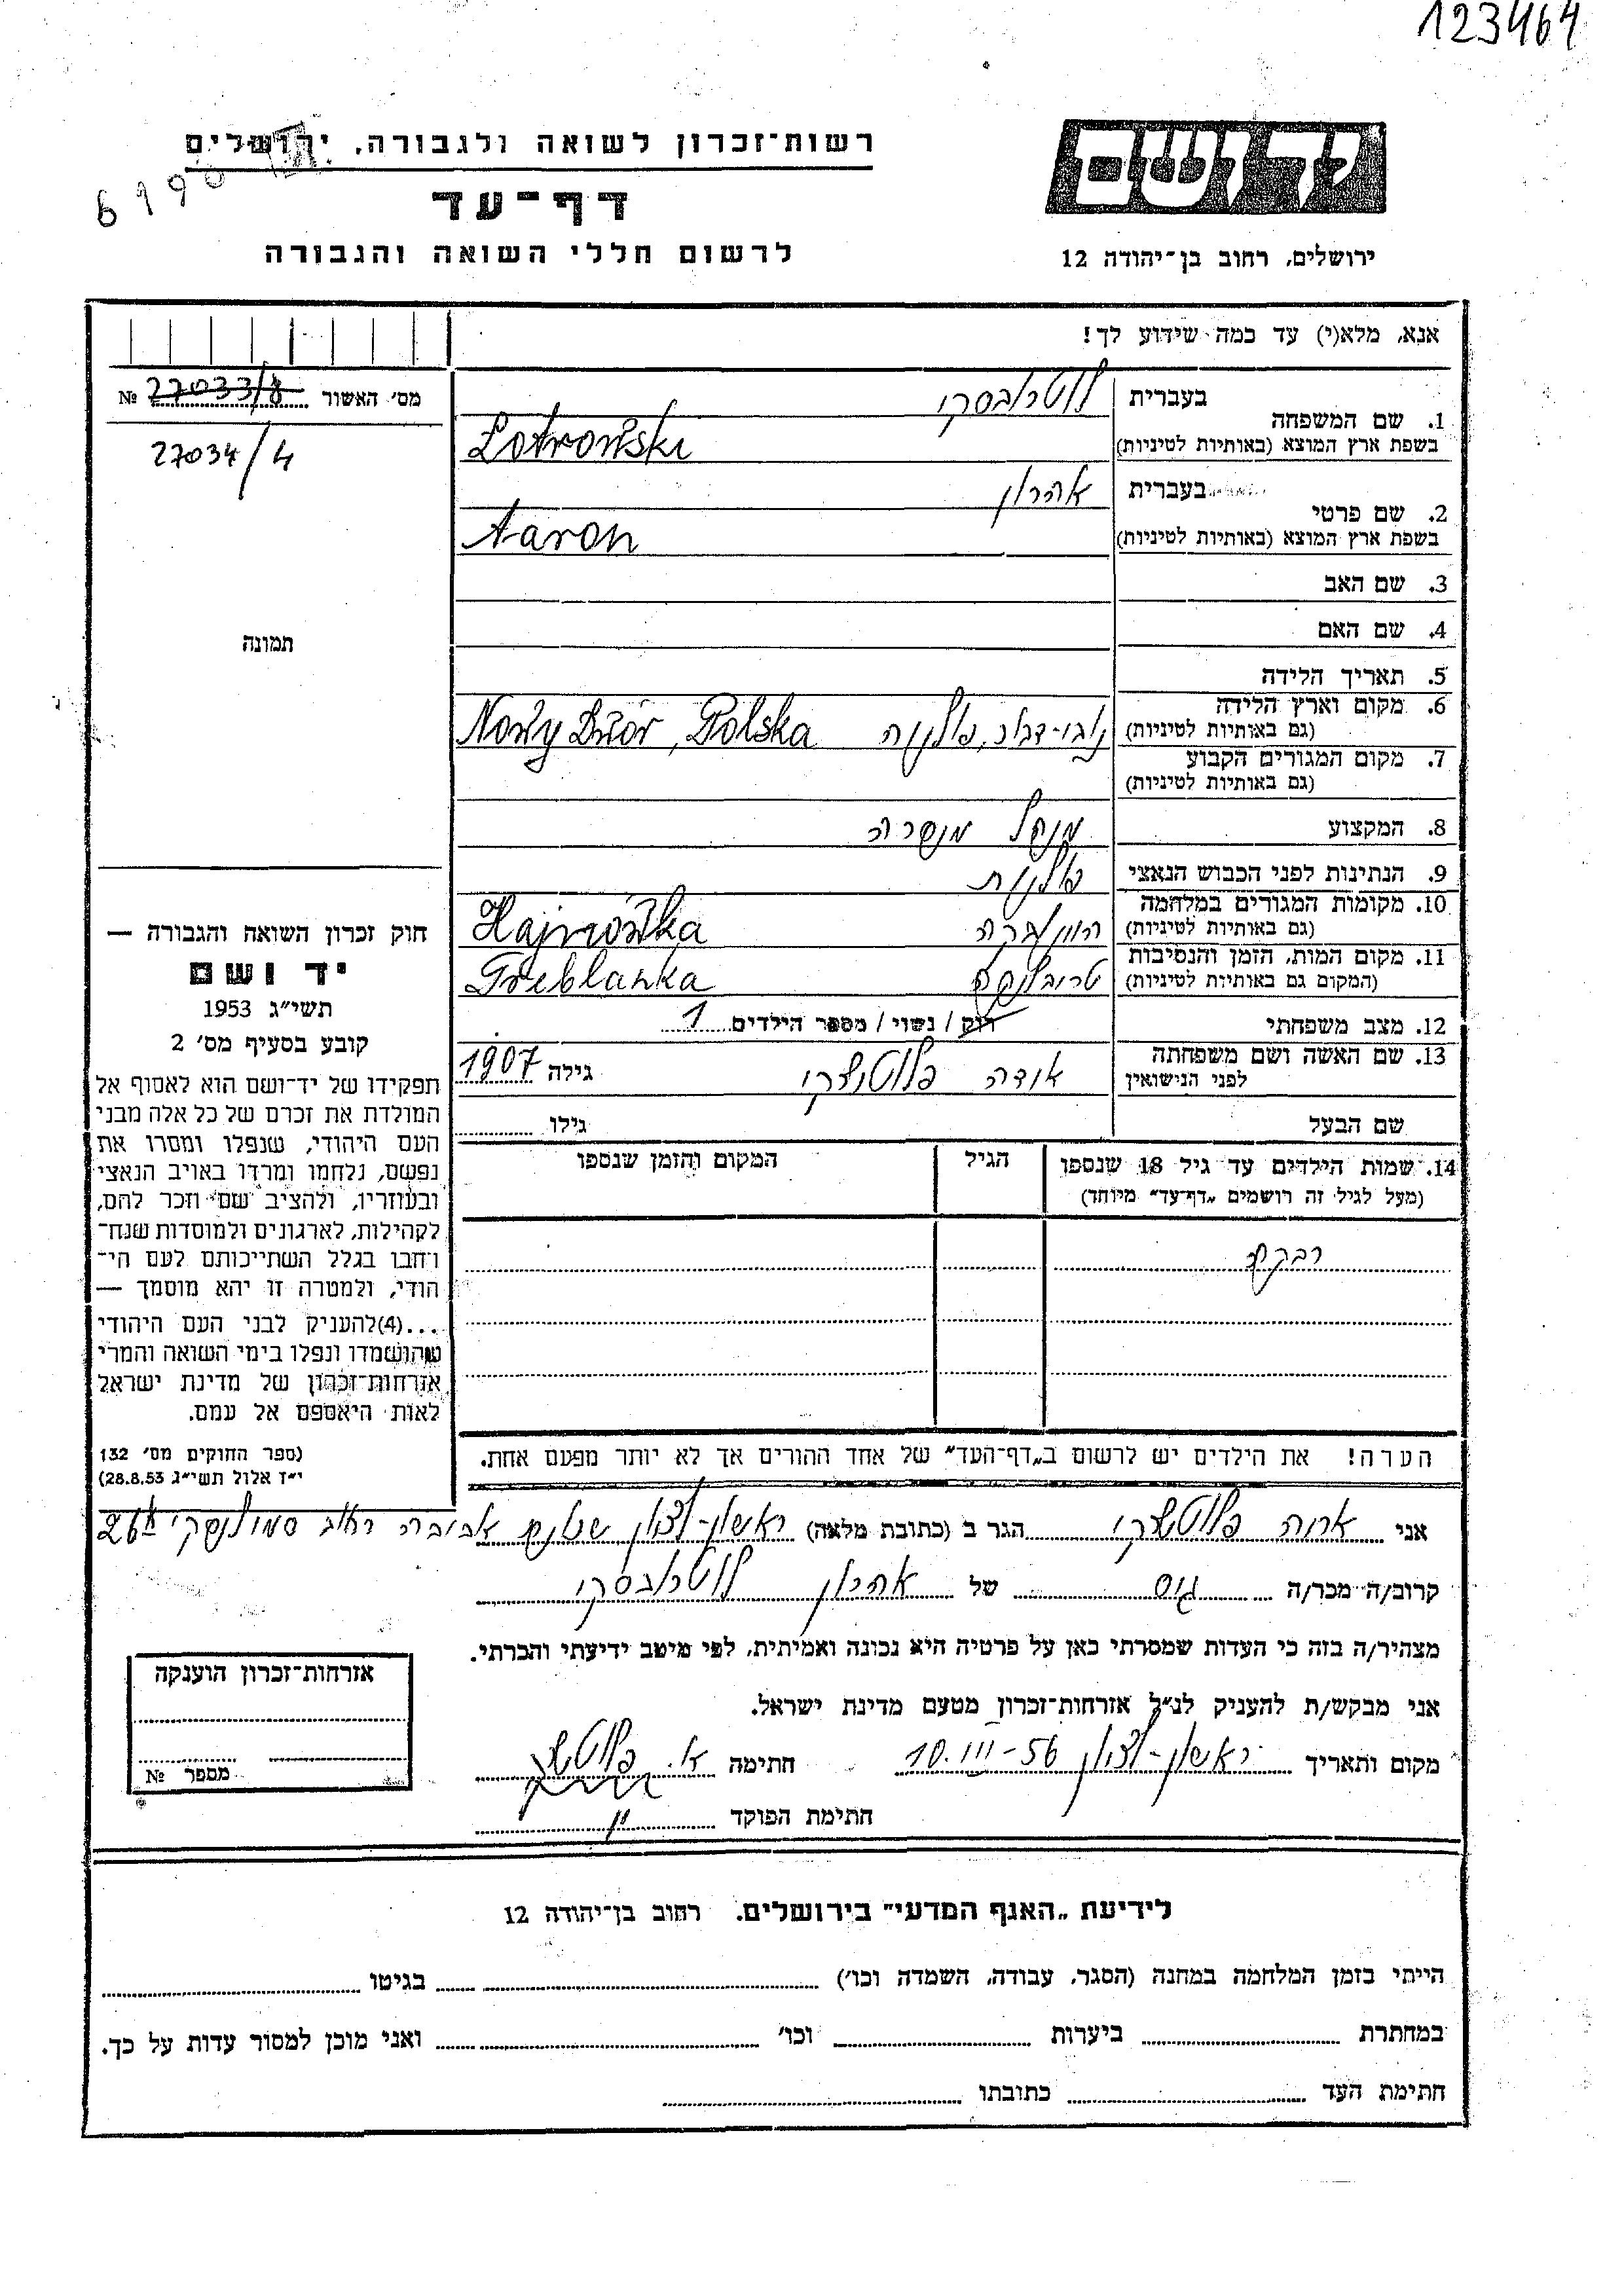 123464
רשות־זכרון לשואה ולגבורה, ירושלים
6190
דף־עד
לרשום חללי השואה והגבורה
יד ושם
ירושלים, רחוב בן־יהודה 12
אנא, מלא(י) עד כמה שידוע לך!
מס׳ האשור 27033/8 №
27034/4
תמונה
1. שם המשפחה בעברית לוטרובסקי
בשפת ארץ המוצא (באותיות לטיניות) Lotrowski
2. שם פרטי בעברית אהרון
בשפת ארץ המוצא (באותיות לטיניות) Aaron
3. שם האב
4. שם האם
5. תאריך הלידה
6. מקום וארץ הלידה
(גם באותיות לטיניות) נובי-דבור, פולניה Nowy Dwór, Polska
7. מקום המגורים הקבוע
(גם באותיות לטיניות)
8. המקצוע מנהל מנסרה
9. הנתינות לפני הכבוש הנאצי פולנית
10. מקומות המגורים במלחמה
(גם באותיות לטיניות) Hajnówka
11. מקום המות, הזמן והנסיבות
(המקום גם באותיות לטיניות) טרבלינקה Treblanka
12. מצב משפחתי רוק / נשוי / מספר הילדים 1
13. שם האשה ושם משפחתה
לפני הנישואין פלוטיצקי גילה 1907
שם הבעל גילו
14. שמות הילדים עד גיל 18 שנספו הגיל המקום והזמן שנספו
(מעל לגיל זה רושמים „דף־עד״ מיוחד)
רבקה
הערה! את הילדים יש לרשום ב„דף־העד״ של אחד ההורים אך לא יותר מפעם אחת.
חוק זכרון השואה והגבורה —
יד ושם
תשי״ג 1953
קובע בסעיף מס׳ 2
תפקידו של יד־ושם הוא לאסוף אל
המולדת את זכרם של כל אלה מבני
העם היהודי, שנפלו ומסרו את
נפשם, נלחמו ומרדו באויב הנאצי
ובעוזריו, ולהציב שם וזכר להם,
לקהילות, לארגונים ולמוסדות שנח־
רחבו בגלל השתייכותם לעם הי־
הודי, ולמטרה זו יהא מוסמך —
...(4)להעניק לבני העם היהודי
שהושמדו ונפלו בימי השואה והמרי
אזרחות־זכרון של מדינת ישראל
לאות היאספם אל עמם.
(ספר החוקים מס׳ 132
י״ז אלול תשי״ג 28.8.53)
אני פלוטיצקי הגר ב (כתובת מלאה) ראשון-לציון שכונת אביבה רחוב סמולנסקי 26א
קרוב/ה מכר/ה גיס של אהרון לוטרובסקי
מצהיר/ה בזה כי העדות שמסרתי כאן על פרטיה היא נכונה ואמיתית, לפי מיטב ידיעתי והכרתי.
אני מבקש/ת להעניק לנ״ל אזרחות־זכרון מטעם מדינת ישראל.
מקום ותאריך ראשון-לציון 10.III-56 חתימה
חתימת הפוקד
אזרחות־זכרון הוענקה
מספר №
לידיעת „האגף המדעי״ בירושלים. רחוב בן־יהודה 12
הייתי בזמן המלחמה במחנה (הסגר, עבודה, השמדה וכו׳) בגיטו
במחתרת ביערות וכו׳ ואני מוכן למסור עדות על כך.
חתימת העד כתובתו